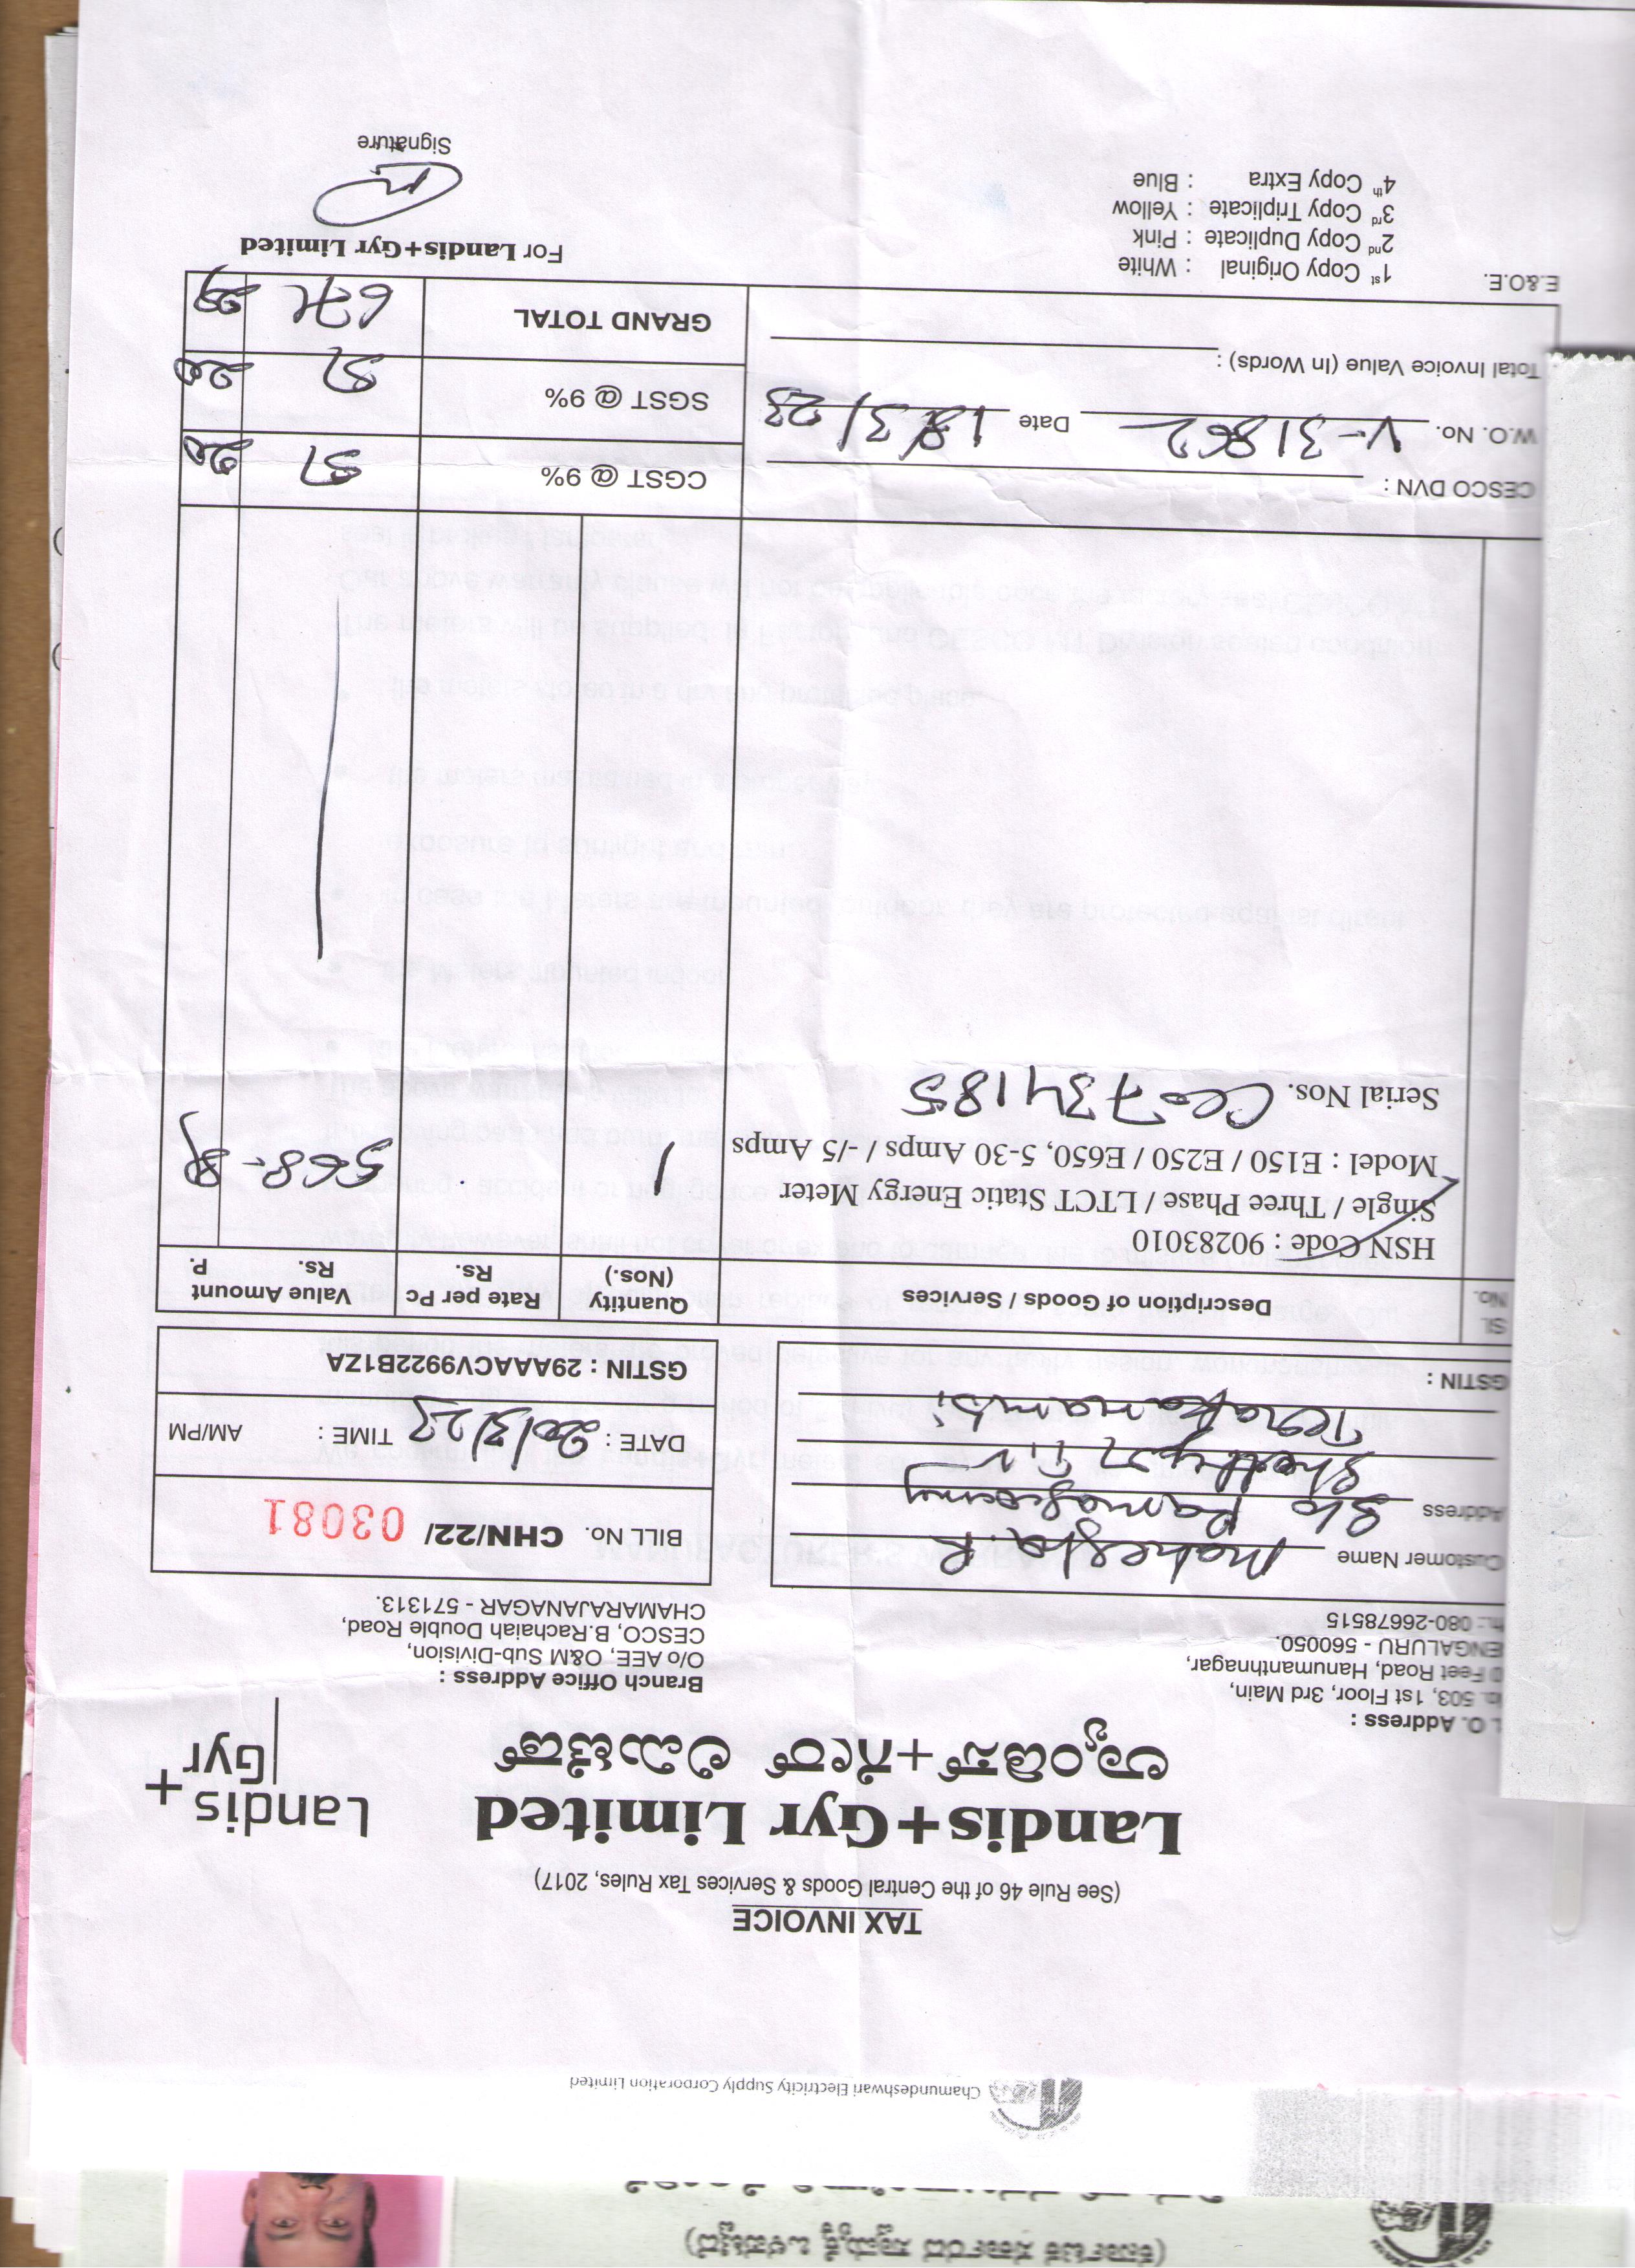 Chamundeshwari Electricity Supply Corporation Limited
TAX INVOICE
(See Rule 46 of the Central Goods & Services Tax Rules, 2017)
Landis+Gyr Limited
ಲ್ಯಾಂಡಿಸ್+ಗೇರ್ ಲಿಮಿಟೆಡ್
Landis+
Gyr
O. Address :
503, 1st Floor, 3rd Main,
Feet Road, Hanumanthnagar,
ENGALURU - 560050.
080-26678515
Branch Office Address :
O/o AEE, O&M Sub-Division,
CESCO, B.Rachaiah Double Road,
CHAMARAJANAGAR - 571313.
Customer Name Mahesha.R
Address S/o Ramaswamy
Shettyur T.V
Terakanambi
GSTIN :
BILL No. CHN/22/ 03081
DATE : 20/3/23 TIME : AM/PM
GSTIN : 29AAACV9922B1ZA
Sl. No. Description of Goods / Services Quantity (Nos.) Rate per Pc Rs. Value Amount Rs. P.
HSN Code : 90283010
Single / Three Phase / LTCT Static Energy Meter
Model : E150 / E250 / E650, 5-30 Amps / -/5 Amps 1 568-
Serial Nos. 734185
CESCO DVN :
W.O. No. V-31862 Date 18/3/23
Total Invoice Value (In Words) :
CGST @ 9% 51 20
SGST @ 9% 51 20
GRAND TOTAL 671
E.&O.E.
1st Copy Original : White
2nd Copy Duplicate : Pink
3rd Copy Triplicate : Yellow
4th Copy Extra : Blue
For Landis+Gyr Limited
Signature